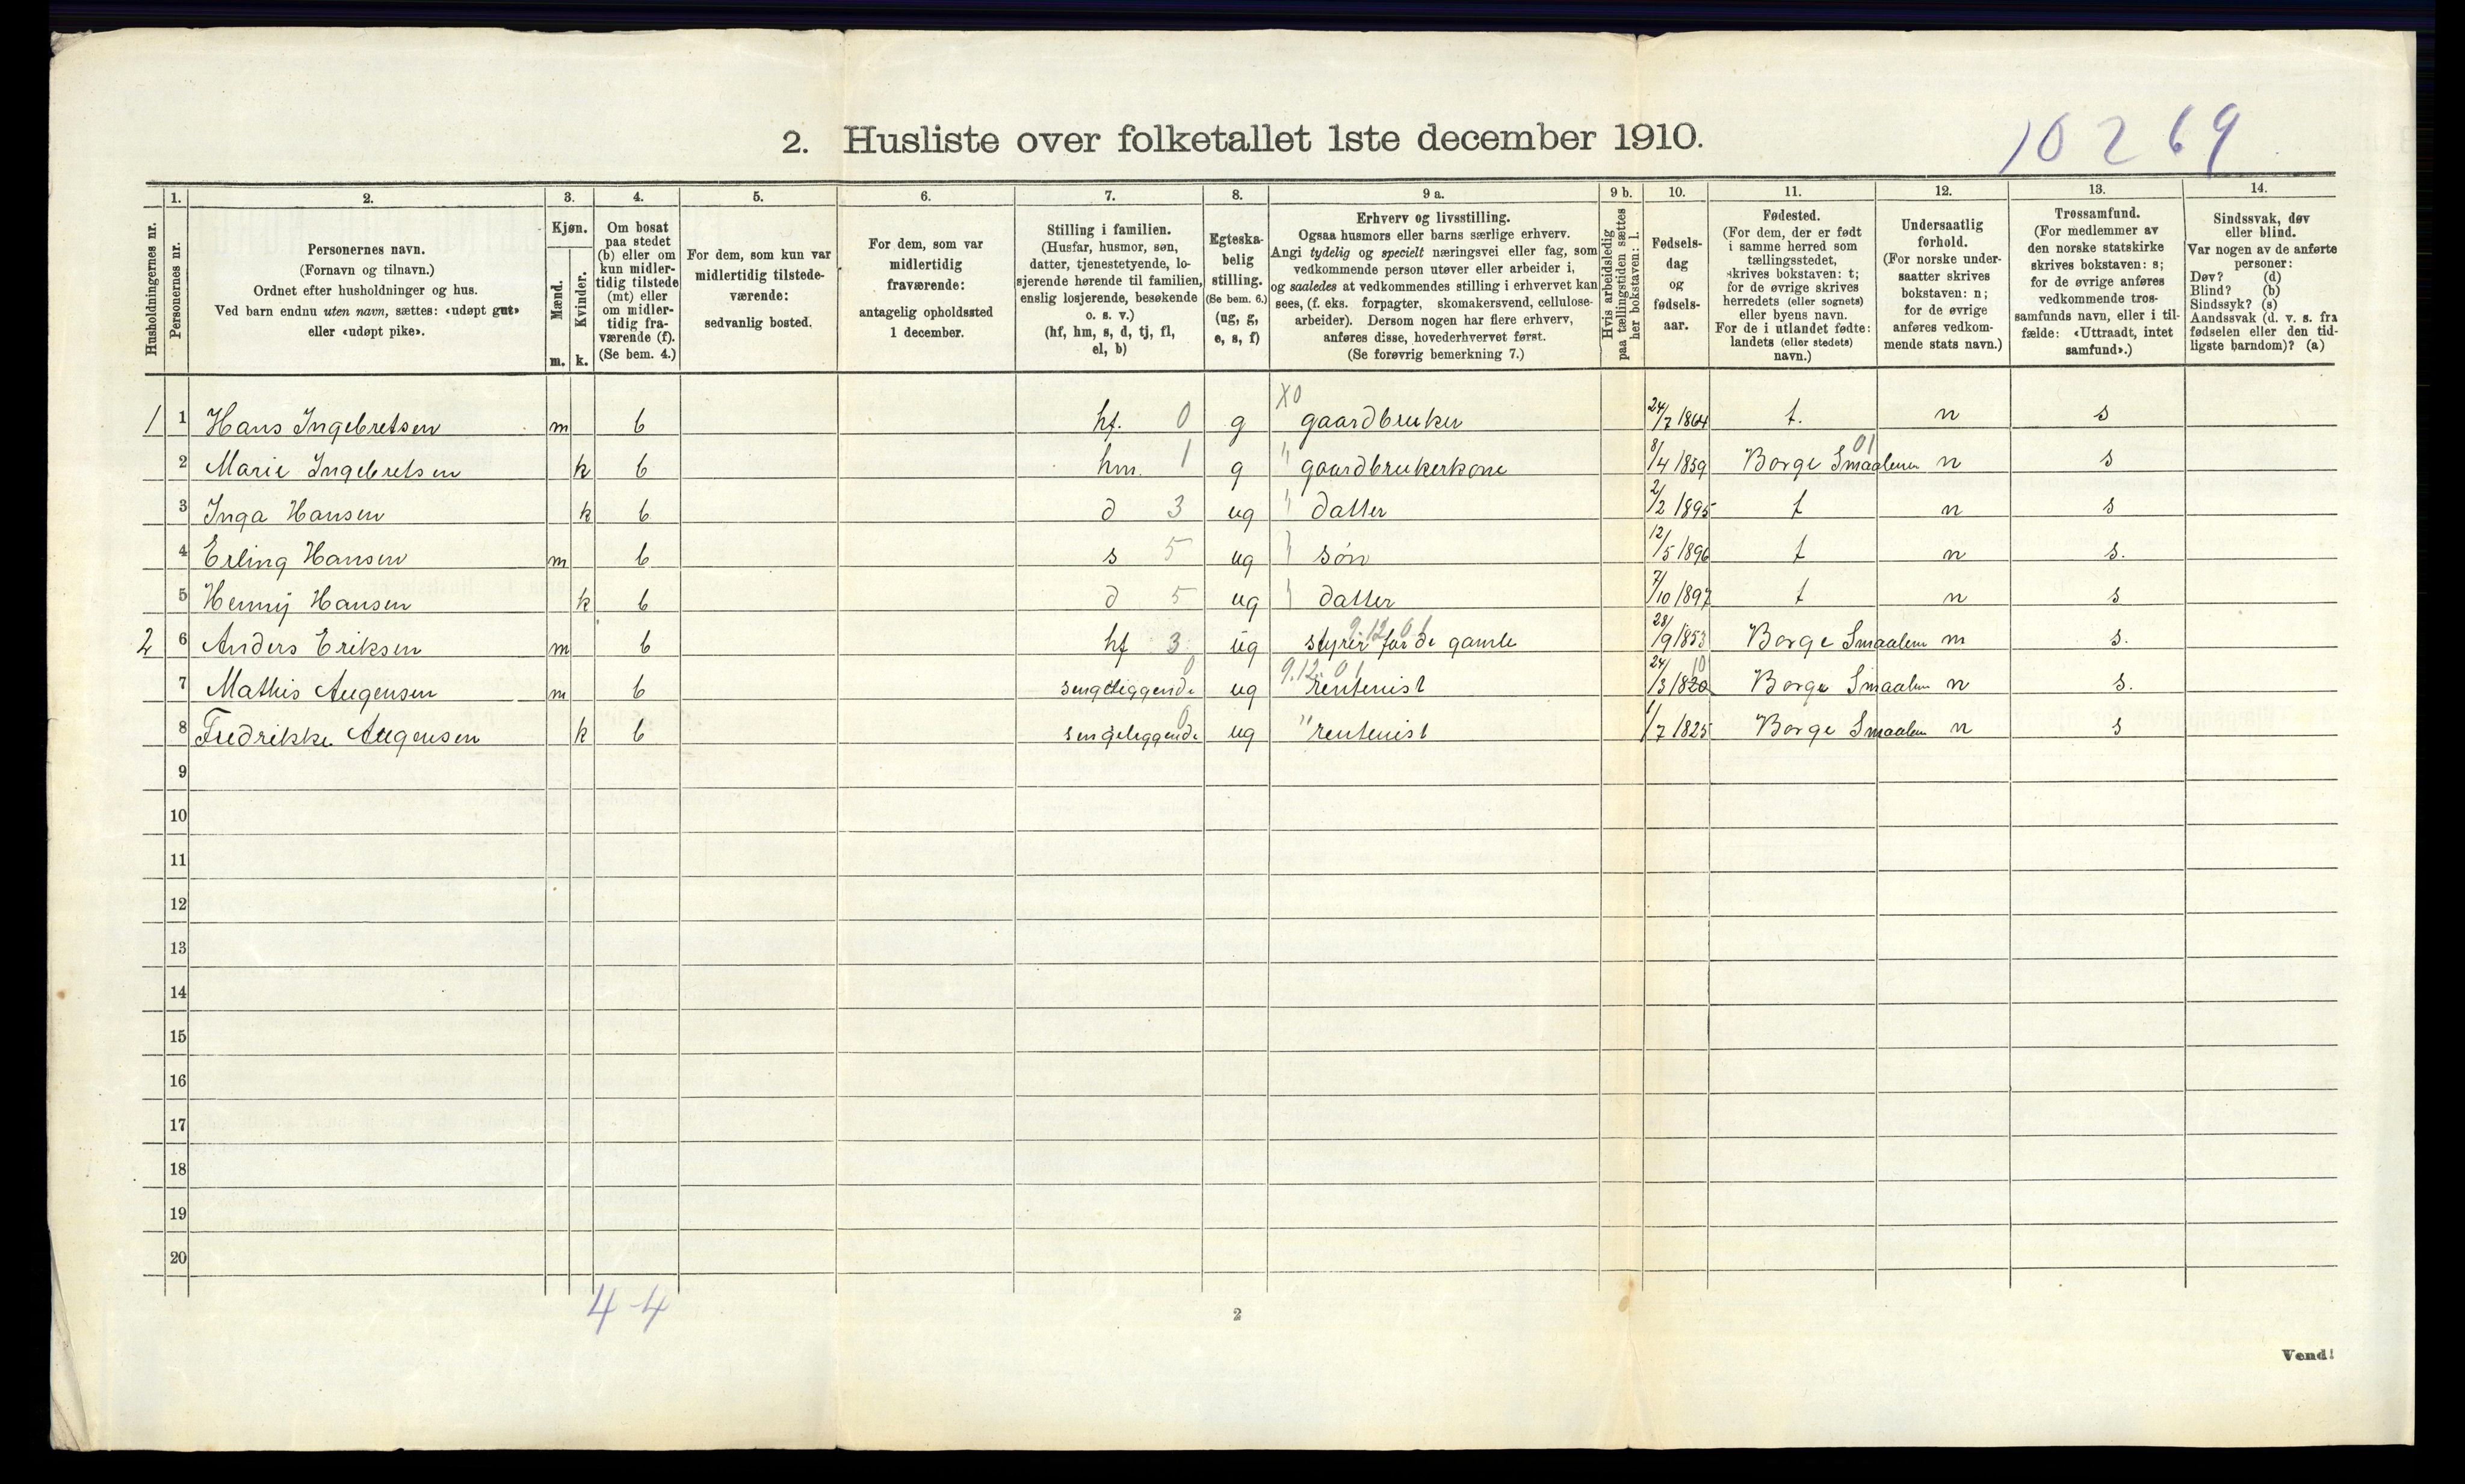 2. Husliste over folketallet 1ste december 1910.
10269
Husholdningernes nr.
1.
Personernes nr.
2.
Personernes navn.
(Fornavn og tilnavn.)
Ordnet efter husholdninger og hus.
Ved barn endnu uten navn, sættes: «udøpt gut»
eller «udøpt pike».
3.
Kjøn.
Mænd.
Kvinder.
m. k.
4.
Om bosat
paa stedet
(b) eller om
kun midler-
tidig tilstede
(mt) eller
om midler-
tidig fra-
værende (f).
(Se bem. 4.)
5.
For dem, som kun var
midlertidig tilstede-
værende:
sedvanlig bosted.
6.
For dem, som var
midlertidig
fraværende:
antagelig opholdssted
1 december.
7.
Stilling i familien.
(Husfar, husmor, søn,
datter, tjenestetyende, lo-
sjerende hørende til familien,
enslig losjerende, besøkende
o. s. v.)
(hf, hm, s, d, tj, fl,
el, b)
8.
Egteska-
belig
stilling.
(Se bem. 6.)
(ug, g,
e, s, f)
9 a.
Erhverv og livsstilling.
Ogsaa husmors eller barns særlige erhverv.
Angi tydelig og specielt næringsvei eller fag, som
vedkommende person utøver eller arbeider i,
og saaledes at vedkommendes stilling i erhvervet kan
sees, (f. eks. forpagter, skomakersvend, cellulose-
arbeider). Dersom nogen har flere erhverv,
anføres disse, hovederhvervet først.
(Se forøvrig bemerkning 7.)
9 b.
Hvis arbeidsledig
paa tællingstiden sættes
her bokstaven: l.
10.
Fødsels-
dag
og
fødsels-
aar.
11.
Fødested.
(For dem, der er født
i samme herred som
tællingsstedet,
skrives bokstaven: t;
for de øvrige skrives
herredets (eller sognets)
eller byens navn.
For de i utlandet fødte:
landets (eller stedets)
navn.)
12.
Undersaatlig
forhold.
(For norske under-
saatter skrives
bokstaven: n;
for de øvrige
anføres vedkom-
mende stats navn.)
13.
Trossamfund.
(For medlemmer av
den norske statskirke
skrives bokstaven: s;
for de øvrige anføres
vedkommende tros-
samfunds navn, eller i til-
fælde: «Uttraadt, intet
samfund».)
14.
Sindssvak, døv
eller blind.
Var nogen av de anførte
personer:
Døv? (d)
Blind? (b)
Sindssyk? (s)
Aandssvak (d. v. s. fra
fødselen eller den tid-
ligste barndom)? (a)
X0
1 1 Hans Ingebretsen m b hf. 0 g gaardbruker 24/7 1864 t. n s
01
2 Marie Ingebretsen k b hm. 1 g " gaardbrukerkone 8/4 1859 Borge Smaalenen n s
3 Inga Hansen k b d 3 ug " datter 2/2 1895 t n s
4 Erling Hansen m b s 5 ug " søn 12/5 1896 t n s.
5 Henny Hansen k b d 5 ug " datter 7/10 1897 t n s
9.12.01
2 6 Anders Eriksen m b hf 3 ug styrer for de gamle 28/9 1853 Borge Smaalem n s.
0 9.12.01 10
7 Mathis Augensen m b sengeliggende ug rentenist 24/3 1820 Borge Smaalen n s.
0
8 Fredrikke Augensen k b sengeleggende ug " rentenist 1/7 1825 Borge Smaalen n s
9
10
11
12
13
14
15
16
17
18
19
20
4-4
2
Vend!